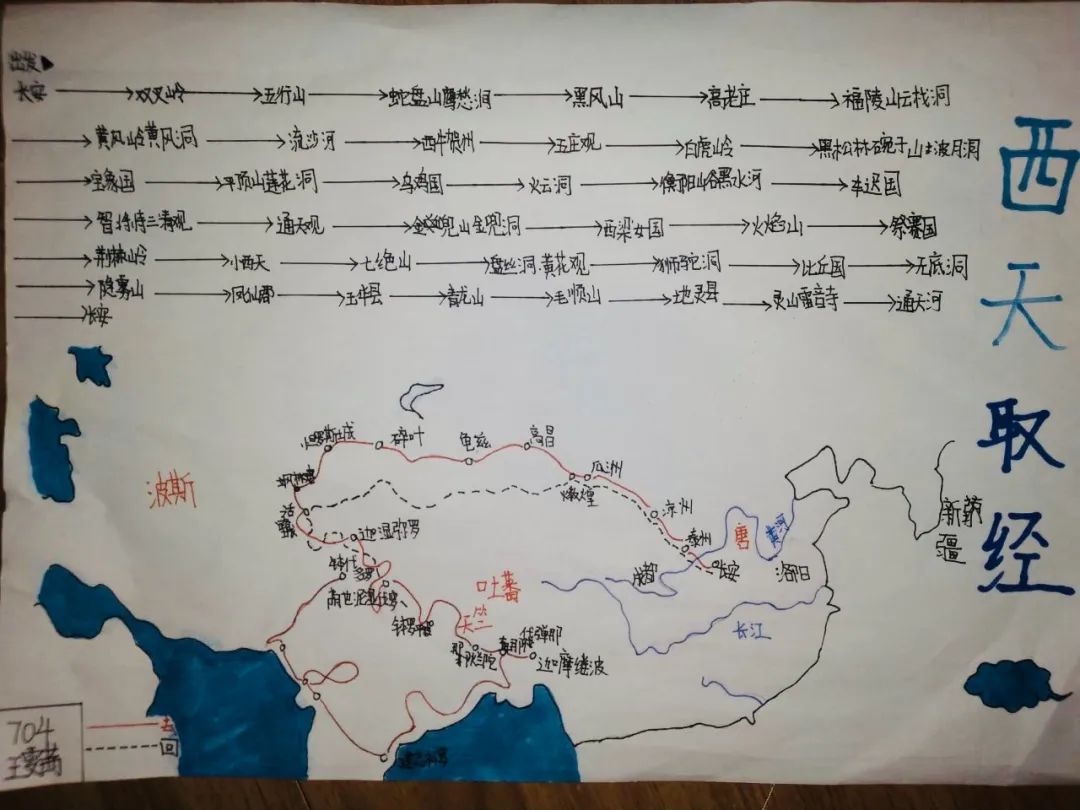 出发
长安 双叉岭 五行山 蛇盘山鹰愁涧 黑风山 高老庄 福陵山云栈洞
黄风岭黄风洞 流沙河 西牛贺州 五庄观 白虎岭 黑松林碗子山波月洞
宝象国 平顶山莲花洞 乌鸡国 火云洞 衡阳山谷黑水河 车迟国
三清观 通天观 金兜山金兜洞 西梁女国 火焰山 祭赛国
荆棘岭 小西天 七绝山 盘丝洞 黄花观 狮驼洞 比丘国 无底洞
隐雾山 凤仙郡 玉华县 青龙山 毛颖山 地灵县 灵山雷音寺 通天河
长安
西天取经
碎叶
龟兹
高昌
瓜洲
敦煌
凉州
秦州
长安
成都
洛阳
唐
黄河
长江
新疆
波斯
活国
迦湿弥罗
吐蕃
天竺
那烂陀
迦摩缕波
704
去
回